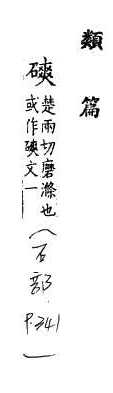 類篇
磢
楚兩切磨滌也
或作文一
(石部 P.341)